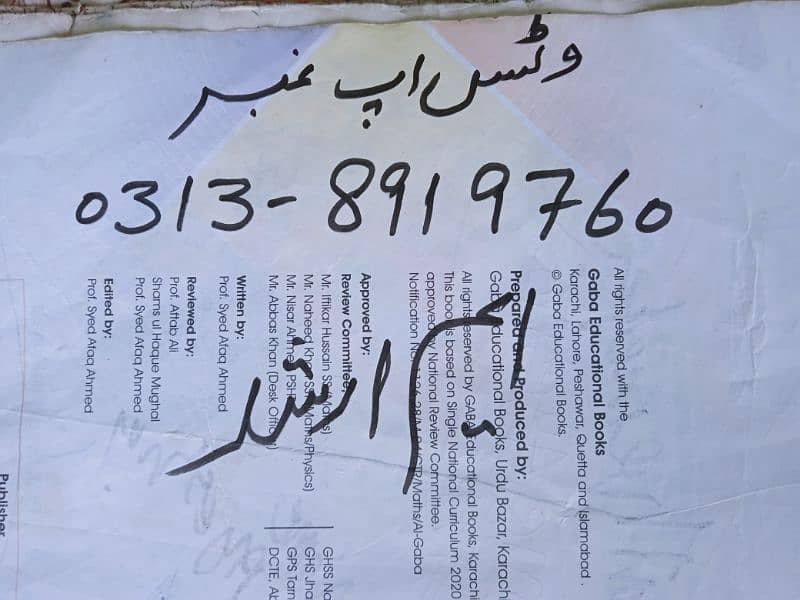 وٹس اپ نمبر
0313-8919760
All rights reserved with the
Gaba Educational Books
Karachi, Lahore, Peshawar, Quetta and Islamabad.
© Gaba Educational Books.
Prepared and Produced by:
Gaba Educational Books, Urdu Bazar, Karach
All rights reserved by GABA Educational Books, Karachi
This book is based on Single National Curriculum 2020
approved by National Review Committee.
Notification No. /Maths/Al-Gaba
Approved by:
Review Committee
Mr. Iftikar Hussain
Mr. Naheed Khan (Maths/Physics)
Mr. Nisar Ahmed
Mr. Abbas Khan (Desk Officer)
GHSS
GHS
GPS
DCTE,
Written by:
Prof. Syed Afaq Ahmed
Reviewed by:
Prof. Aftab Ali
Shams ul Haque Mughal
Prof. Syed Afaq Ahmed
Edited by:
Prof. Syed Afaq Ahmed
Publisher